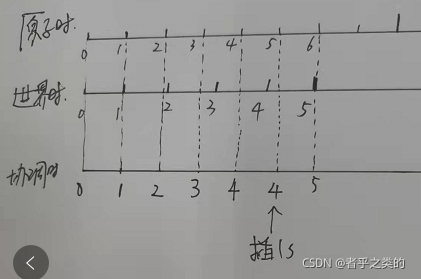 原子时
0 1 2 3 4 5 6
世界时
0 1 2 3 4 5
协调时
0 1 2 3 4 4 5
插1s
CSDN @者乎之类的